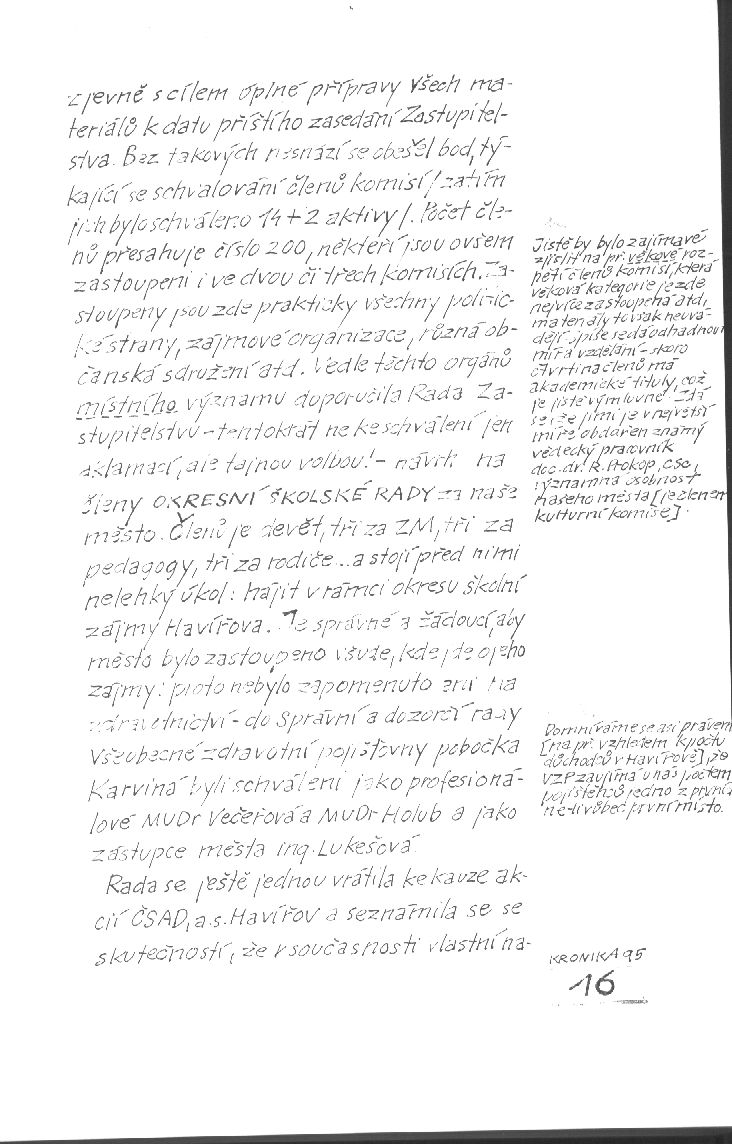 zjevně s cílem úplné přípravy všech ma-
teriálů k datu příštího zasedání Zastupitel-
stva. Bez takových nesnází se obešel bod, tý-
kající se schvalování členů komisí /zatím
jich bylo schváleno 14+2 aktivy/. Počet čle-
nů přesahuje číslo 200, někteří jsou ovšem
zastoupeni i ve dvou či třech komisích. Za-
stoupeny jsou zde prakticky všechny politic-
ké strany, zájmové organizace, různá ob-
čanská sdružení atd. Vedle těchto orgánů
místního významu doporučila Rada Za-
stupitelstvu - tentokrát ne ke schválení jen
aklamací, ale tajnou volbou! - návrh na
členy OKRESNÍ ŠKOLSKÉ RADY za naše
město. Členů je devět, tři za ZM, tři za
pedagogy, tři za rodiče... a stojí před nimi
nelehký úkol: hájit v rámci okresu školní
zájmy Havířova. Je správné a žádoucí, aby
město bylo zastoupeno všude, kde jde o jeho
zájmy: proto nebylo zapomenuto ani na
zdravotnictví - do Správní a dozorčí rady
Všeobecné zdravotní pojišťovny pobočka
Karviná byli schváleni jako profesioná-
lové MUDr Večeřová a MUDr Holub a jako
zástupce města ing. Lukešová.
Rada se ještě jednou vrátila ke kauze ak-
cií ČSAD, a.s. Havířov a seznámila se se
skutečností, že v současnosti vlastní na-
Jistě by bylo zajímavé
zjistit na př. věkové roz-
pětí členů komisí, která
věková kategorie je zde
nejvíce zastoupena atd.,
materiály to však neuvá-
dějí, spíše se dá odhadnout
míra vzdělání - skoro
čtvrtina členů má
akademické tituly, což
je jistě výmluvné. Zdá
se, že jimi je v největší
míře obdařen známý
vědecký pracovník
doc. dr. R. Prokop, CSc.,
významná osobnost
našeho města [je členem
kulturní komise].
Domníváme se asi právem
[na př. vzhledem k počtu
důchodců v Havířově], že
VZP zaujímá u nás počtem
pojištěnců jedno z první,
ne-li vůbec první místo.
KRONIKA 95
16